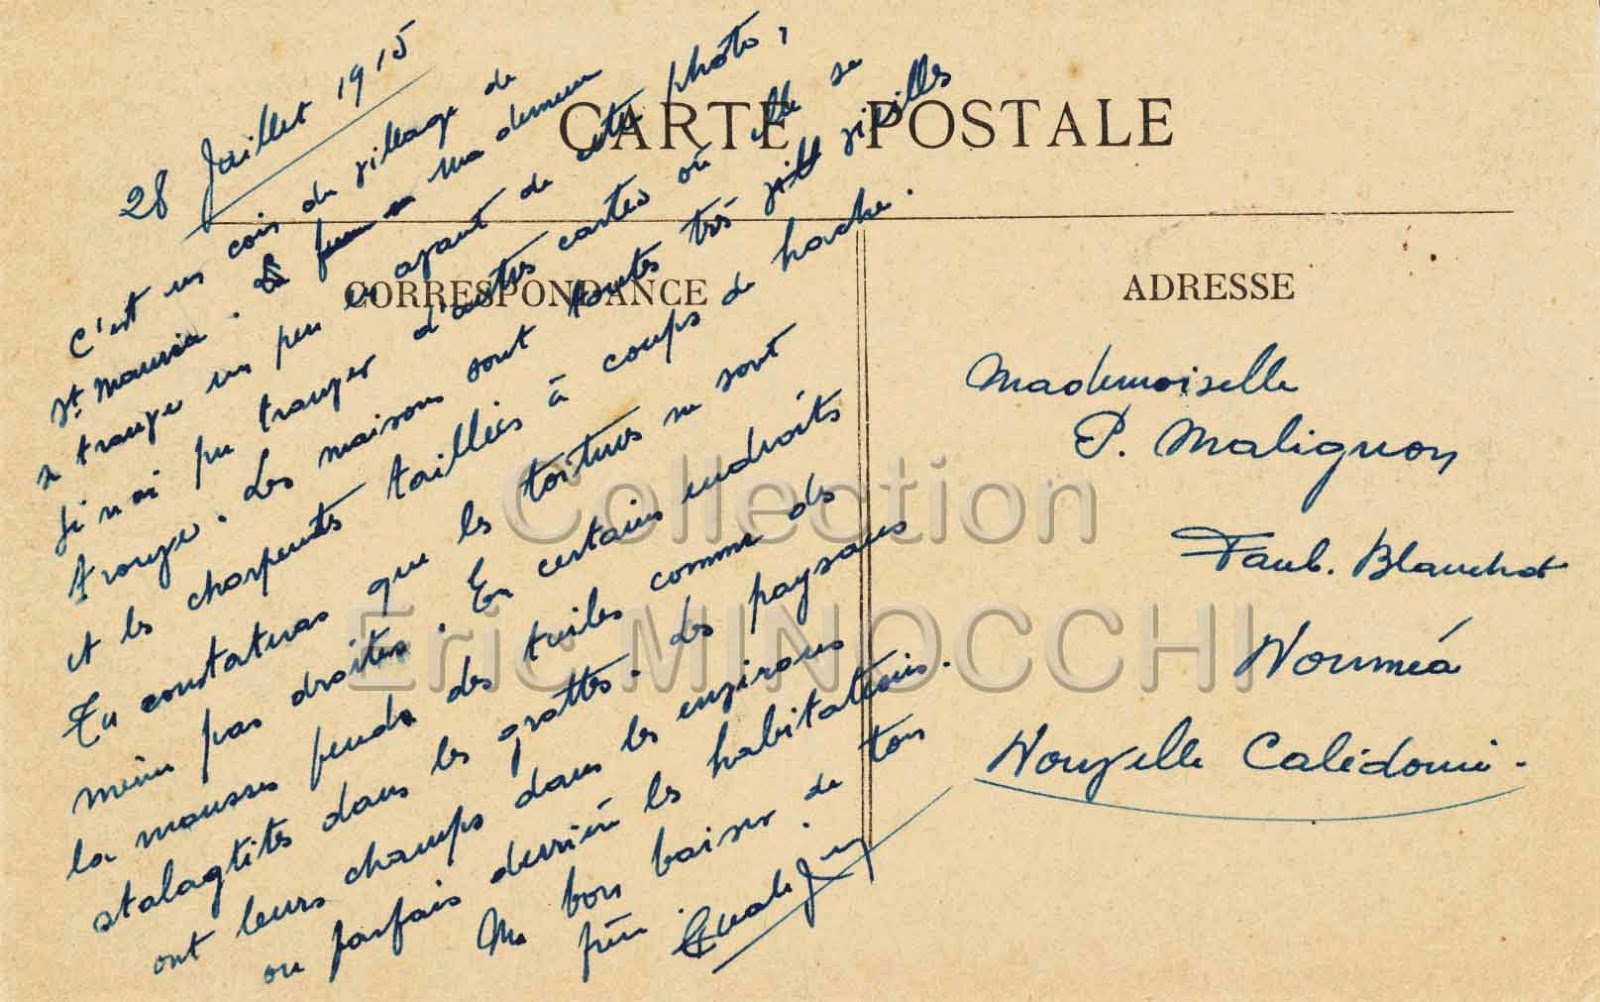 CARTE POSTALE
CORRESPONDANCE
ADRESSE
28 Juillet 1915
C'est un coin du village de
St. Maurice. ma demeure
se trouve un peu en avant de cette photo,
Je n'ai pu trouver d'autres cartes où elle se
trouve. Les maisons sont toutes très vieilles
et les charpentes taillées à coups de hache.
Tu constateras que les toitures ne sont
même pas droites. En certains endroits
la mousse pend des tuiles comme des
stalagtites dans les grottes. Les paysans
ont leurs champs dans les environs
ou parfois derrière les habitations.
Un bon baiser de ton
père
Mademoiselle
P. Malignon
Faub. Blanchot
Nouméa
Nouvelle Calédonie.
Collection
Eric MINOCCHI